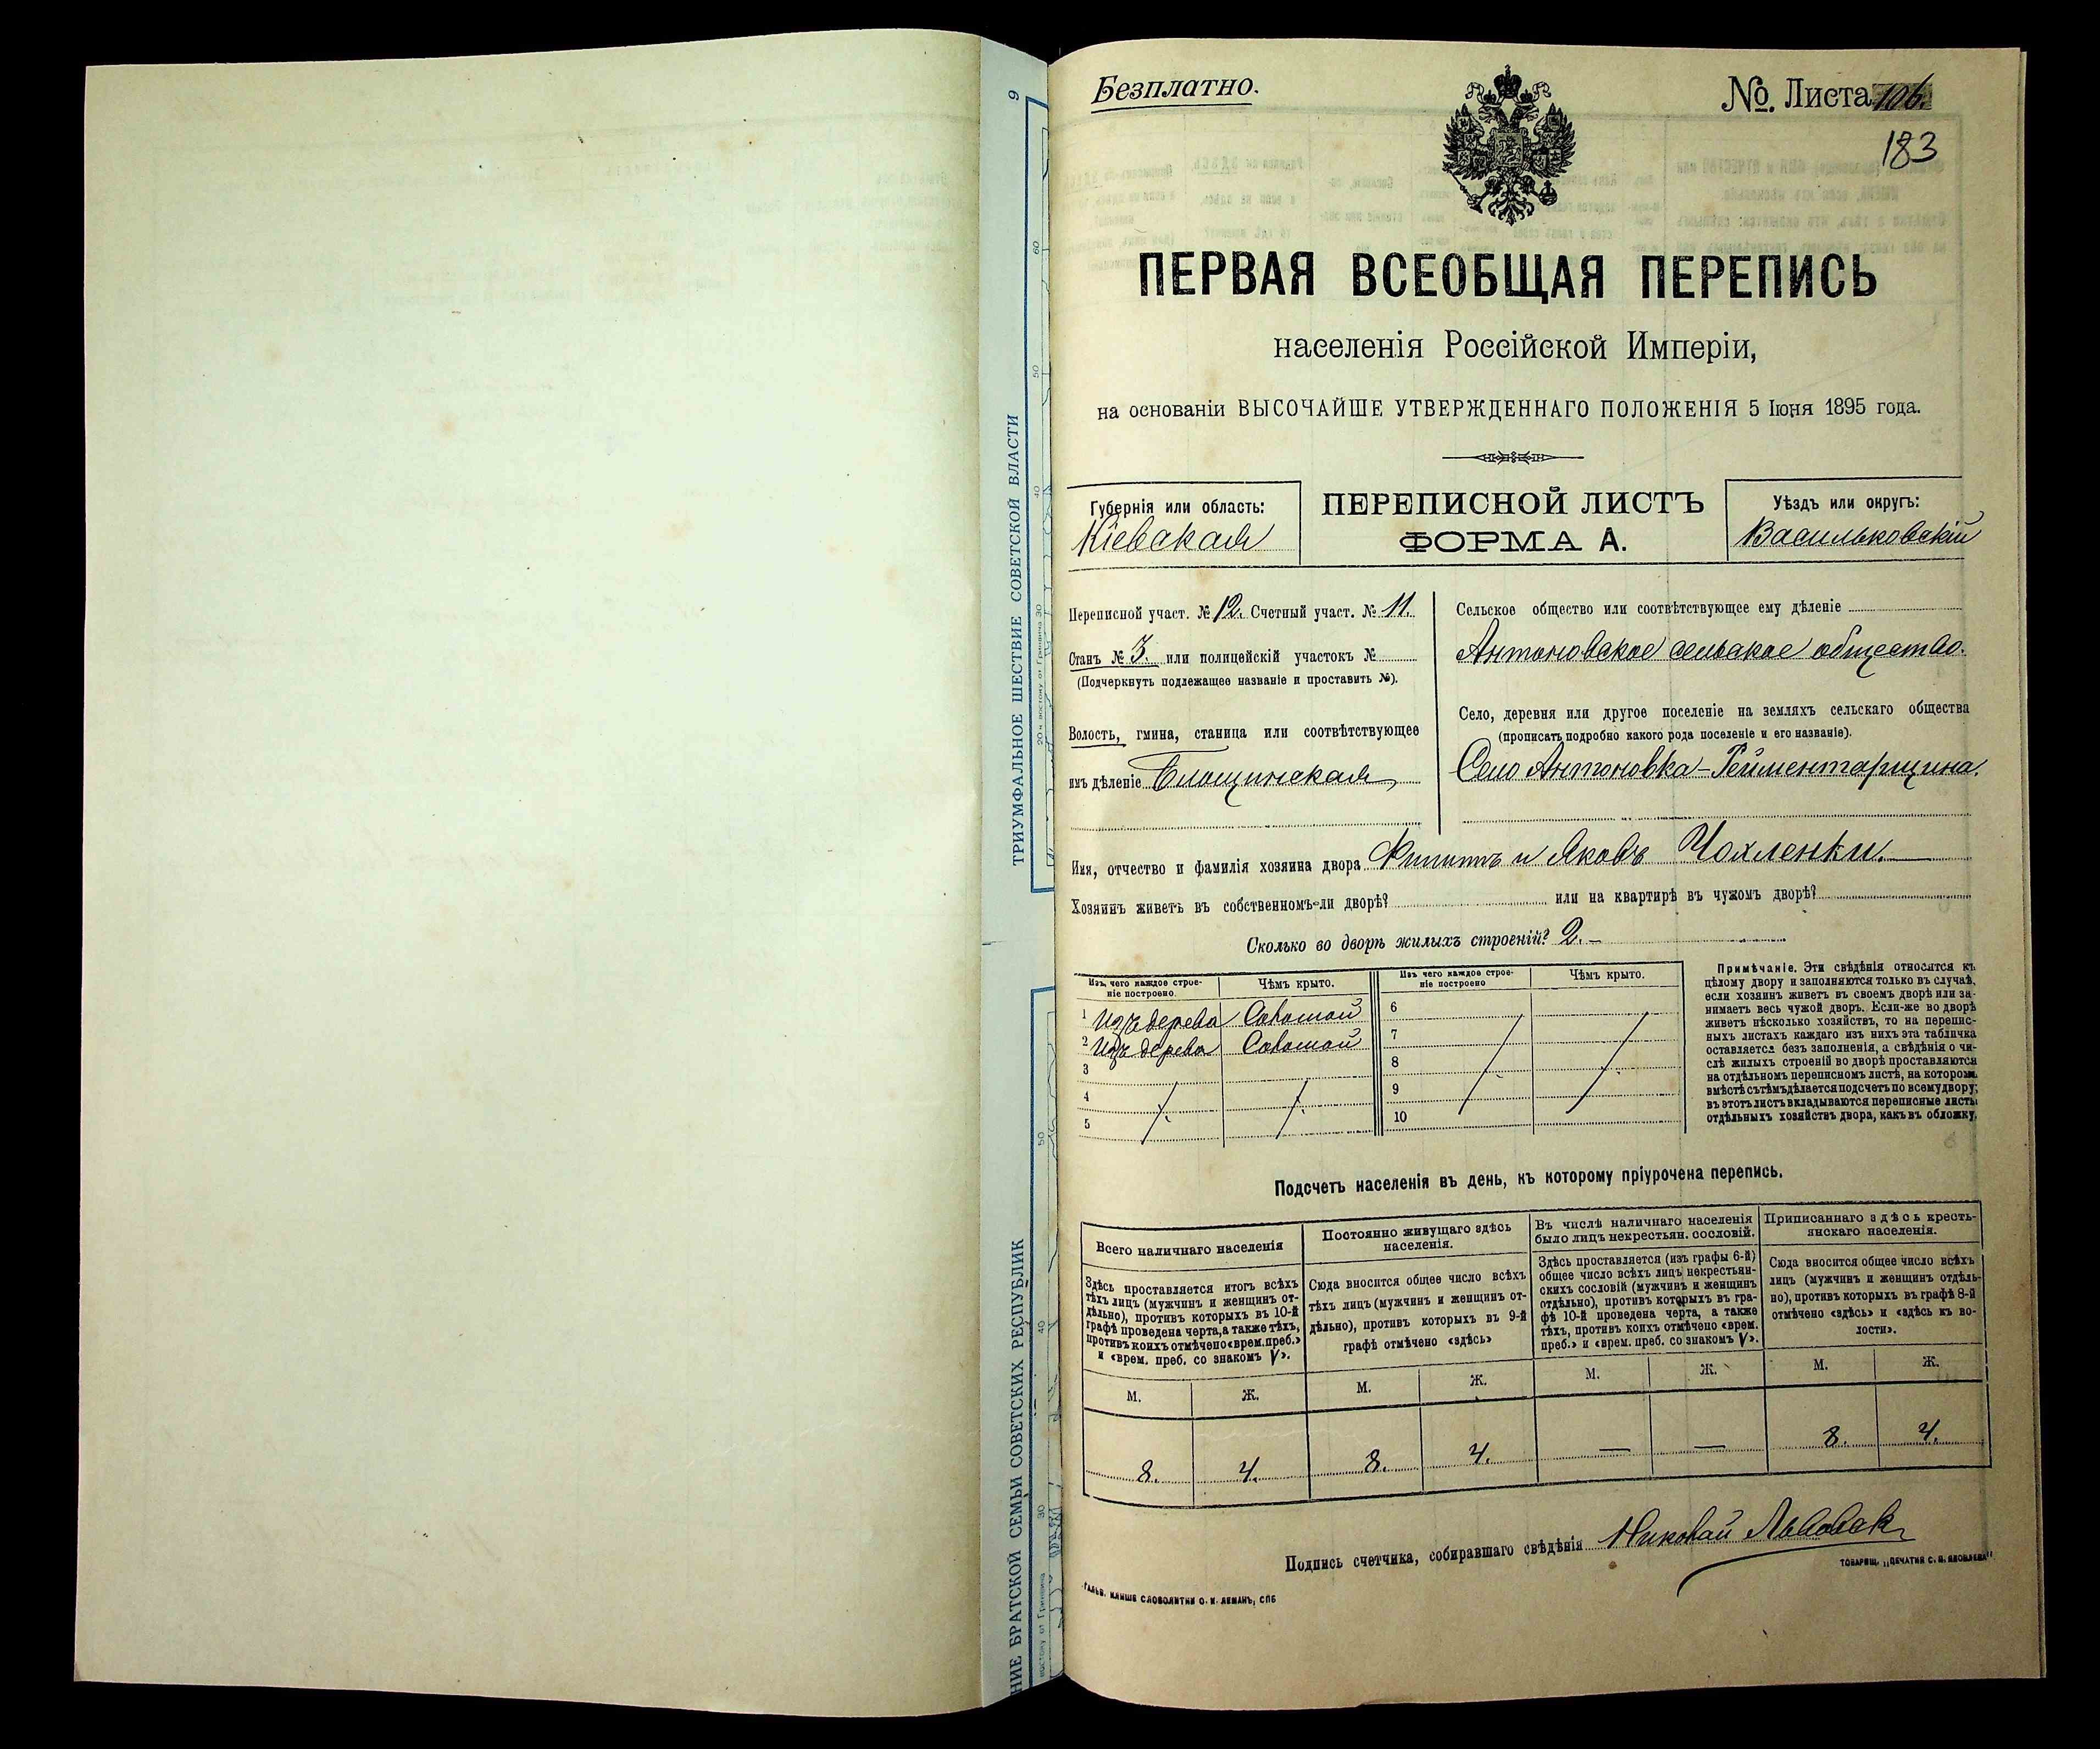 Безплатно.
№. Листа 106.
183
ПЕРВАЯ ВСЕОБЩАЯ ПЕРЕПИСЬ
населенія Россійской Имперіи,
на основаніи ВЫСОЧАЙШЕ УТВЕРЖДЕННАГО ПОЛОЖЕНІЯ 5 Іюня 1895 года.
Губернія или область:
Кіевская
ПЕРЕПИСНОЙ ЛИСТЪ
ФОРМА А.
Уѣздъ или округъ:
Васильковскій
Переписной участ. № 12. Счетный участ. № 11.
Станъ № 3. или полицейскій участокъ №
(Подчеркнуть подлежащее названіе и проставить №).
Волость, гмина, станица или соотвѣтствующее
имъ дѣленіе Блощинская
Сельское общество или соотвѣтствующее ему дѣленіе
Антоновское сельское общество.
Село, деревня или другое поселеніе на земляхъ сельскаго общества
(прописать подробно какого рода поселеніе и его названіе).
Село Антоновка-Рейментарщина.
Имя, отчество и фамилія хозяина двора Филиппъ и Яковъ Чохленки.
Хозяинъ живетъ въ собственномъ-ли дворѣ? или на квартирѣ въ чужомъ дворѣ?
Сколько во дворѣ жилыхъ строеній? 2.
Изъ чего каждое строе-
ніе построено.
Чѣмъ крыто.
Изъ чего каждое строе-
ніе построено
Чѣмъ крыто.
1 Изъ дерева Соломой
2 Изъ дерева Соломой
3
4
5
6
7
8
9
10
Примѣчаніе. Эти свѣдѣнія относятся къ
цѣлому двору и заполняются только въ случаѣ,
если хозяинъ живетъ въ своемъ дворѣ или за-
нимаетъ весь чужой дворъ. Если-же во дворѣ
живетъ нѣсколько хозяйствъ, то на перепис-
ныхъ листахъ каждаго изъ нихъ эта табличка
оставляется безъ заполненія, а свѣдѣнія о чи-
слѣ жилыхъ строеній во дворѣ проставляются
на отдѣльномъ переписномъ листѣ, на которомъ
вмѣстѣ съ тѣмъ дѣлается подсчетъ по всему двору;
въ этотъ листъ вкладываются переписные листы
отдѣльныхъ хозяйствъ двора, какъ въ обложку.
Подсчетъ населенія въ день, къ которому пріурочена перепись.
Всего наличнаго населенія
Здѣсь проставляется итогъ всѣхъ
тѣхъ лицъ (мужчинъ и женщинъ от-
дѣльно), противъ которыхъ въ 10-й
графѣ проведена черта, а также тѣхъ,
противъ коихъ отмѣчено «врем. преб.»
и «врем. преб. со знакомъ V».
Постоянно живущаго здѣсь
населенія.
Сюда вносится общее число всѣхъ
тѣхъ лицъ (мужчинъ и женщинъ от-
дѣльно), противъ которыхъ въ 9-й
графѣ отмѣчено «здѣсь»
Въ числѣ наличнаго населенія
было лицъ некрестьян. сословій.
Здѣсь проставляется (изъ графы 6-й)
общее число всѣхъ лицъ некрестьян-
скихъ сословій (мужчинъ и женщинъ
отдѣльно), противъ которыхъ въ гра-
фѣ 10-й проведена черта, а также
тѣхъ, противъ коихъ отмѣчено «врем.
преб.» и «врем. преб. со знакомъ V».
Приписаннаго здѣсь кресть-
янскаго населенія.
Сюда вносится общее число всѣхъ
лицъ (мужчинъ и женщинъ отдѣль-
но), противъ которыхъ въ графѣ 8-й
отмѣчено «здѣсь» и «здѣсь къ во-
лости».
М. Ж. М. Ж. М. Ж. М. Ж.
8. 4. 8. 4. — — 8. 4.
Подпись счетчика, собиравшаго свѣдѣнія Николай
ГАЛЬВ. КЛИШЕ СЛОВОЛИТНИ О. И. ЛЕМАНЪ, СПБ
ТОВАРИЩ. „ПЕЧАТНЯ С. П. ЯКОВЛЕВА“
ТРИУМФАЛЬНОЕ ШЕСТВИЕ СОВЕТСКОЙ ВЛАСТИ
НИЕ БРАТСКОЙ СЕМЬИ СОВЕТСКИХ РЕСПУБЛИК